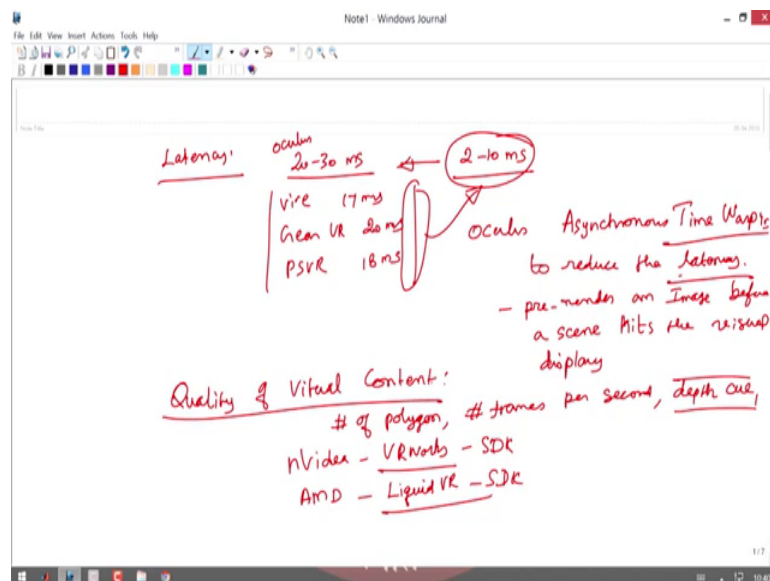 Note1 - Windows Journal
File Edit View Insert Actions Tools Help
B I
Note Title
Latency:
oculus
20-30 ms
2-10 ms
vive 17ms
Gear VR 20ms
PSVR 18ms
oculus Asynchronous Time Warpi
to reduce the latency.
- pre-render an Image before
a scene hits the visual
display
Quality of Vitual Content:
# of polygon, # frames per second, depth cue,
nVidea - VRWorks - SDK
AMD - Liquid VR - SDK
1/7